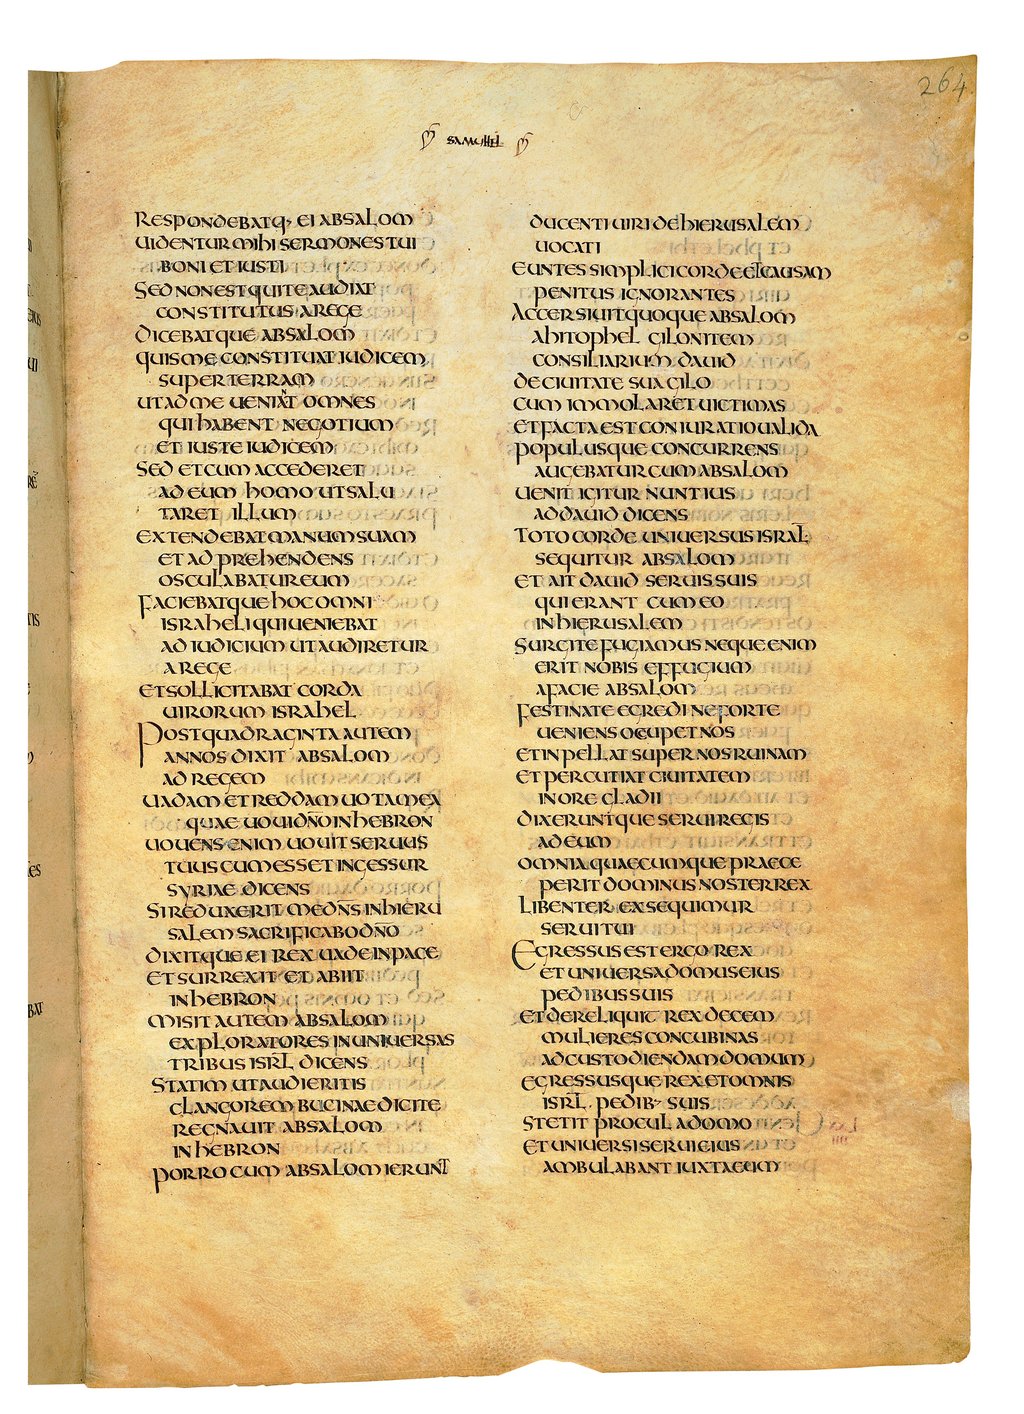 264
SAMUHEL
RESPONDEBATQ· EI ABSALOM
UIDENTUR MIHI SERMONES TUI
BONI ET IUSTI
SED NON EST QUI TE AUDIAT
CONSTITUTUS A REGE
DICEBATQUE ABSALOM
QUIS ME CONSTITUAT IUDICEM
SUPER TERRAM
UT AD ME UENIAÑT OMNES
QUI HABENT NEGOTIUM
ET IUSTE IUDICEM
SED ET CUM ACCEDERET
AD EUM HOMO UT SALU
TARET ILLUM
EXTENDEBAT MANUM SUAM
ET ADPREHENDENS
OSCULABATUR EUM
FACIEBATQUE HOC OMNI
ISRAHELI QUI UENIEBAT
AD IUDICIUM UT AUDIRETUR
A REGE
ET SOLLICITABAT CORDA
UIRORUM ISRAHEL
POST QUADRAGINTA AUTEM
ANNOS DIXIT ABSALOM
AD REGEM
UADAM ET REDDAM UOTA MEA
QUAE UOUI DÑO IN HEBRON
UOUENS ENIM UOUIT SERUUS
TUUS CUM ESSET IN GESSUR
SYRIAE DICENS
SI REDUXERIT ME DÑS IN HIERU
SALEM SACRIFICABO DÑO
DIXITQUE EI REX UADE IN PACE
ET SURREXIT ET ABIIT
IN HEBRON
MISIT AUTEM ABSALOM
EXPLORATORES IN UNIUERSAS
TRIBUS ISRL̄ DICENS
STATIM UT AUDIERITIS
CLANGOREM BUCINAE DICITE
REGNAUIT ABSALOM
IN HEBRON
PORRO CUM ABSALOM IERUNT
DUCENTI UIRI DE HIERUSALEM
UOCATI
EUNTES SIMPLICI CORDE ET CAUSAM
PENITUS IGNORANTES
ACCERSIUIT QUOQUE ABSALOM
AHITOPHEL GILONITEM
CONSILIARIUM DAUID
DE CIUITATE SUA GILO
CUM IMMOLARET UICTIMAS
ET FACTA EST CONIURATIO UALIDA
POPULUSQUE CONCURRENS
AUGEBATUR CUM ABSALOM
UENIT IGITUR NUNTIUS
AD DAUID DICENS
TOTO CORDE UNIUERSUS ISRAL̄
SEQUITUR ABSALOM
ET AIT DAUID SERUIS SUIS
QUI ERANT CUM EO
IN HIERUSALEM
SURGITE FUGIAMUS NEQUE ENIM
ERIT NOBIS EFFUGIUM
A FACIE ABSALOM
FESTINATE EGREDI NE FORTE
UENIENS OCUPET NOS
ET INPELLAT SUPER NOS RUINAM
ET PERCUTIAT CIUITATEM
IN ORE GLADII
DIXERUNTQUE SERUI REGIS
AD EUM
OMNIA QUAECUMQUE PRAECE
PERIT DOMINUS NOSTER REX
LIBENTER EXSEQUIMUR
SERUI TUI
EGRESSUS EST ERGO REX
ET UNIUERSA DOMUS EIUS
PEDIBUS SUIS
ET DERELIQUIT REX DECEM
MULIERES CONCUBINAS
AD CUSTODIENDAM DOMUM
EGRESSUSQUE REX ET OMNIS
ISRL̄ PEDIB· SUIS
STETIT PROCUL A DOMO
ET UNIUERSI SERUI EIUS
AMBULABANT IUXTA EUM